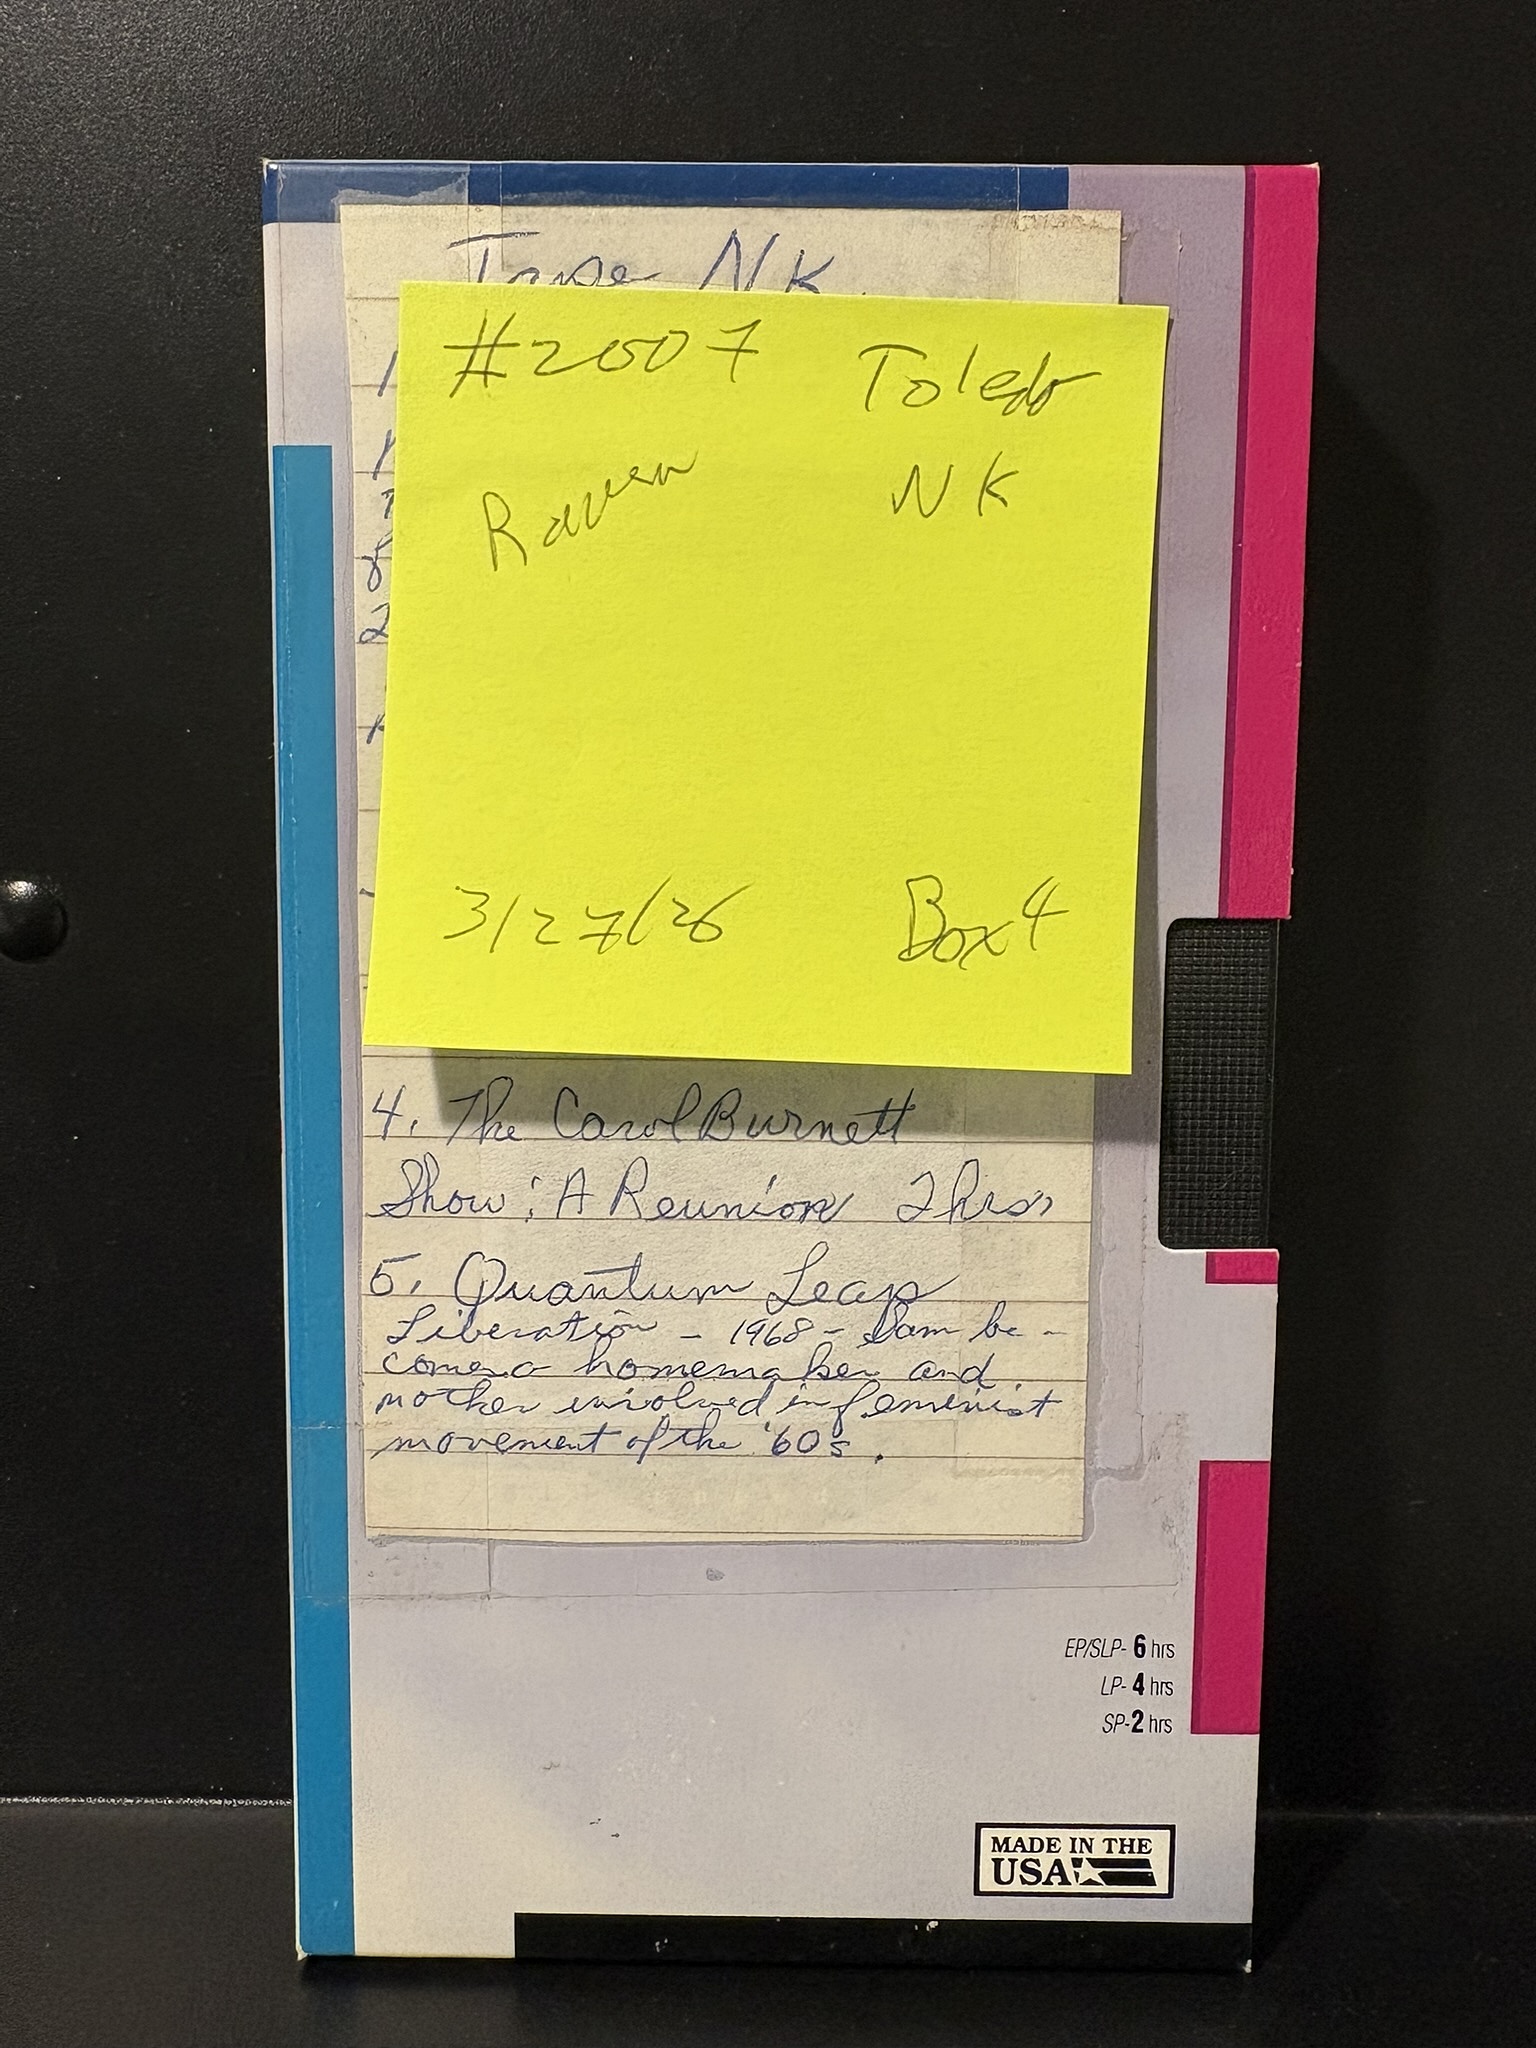 Tape NK
#2007 Toledo
Raven NK
3/27/26 Box 4
4. The Carol Burnett
Show: A Reunion 2hrs.
5. Quantum Leap
Liberation - 1968 - Sam be-
comes a homemaker and
mother involved in feminist
movement of the '60s.
EP/SLP- 6 hrs
LP- 4 hrs
SP- 2 hrs
MADE IN THE
USA